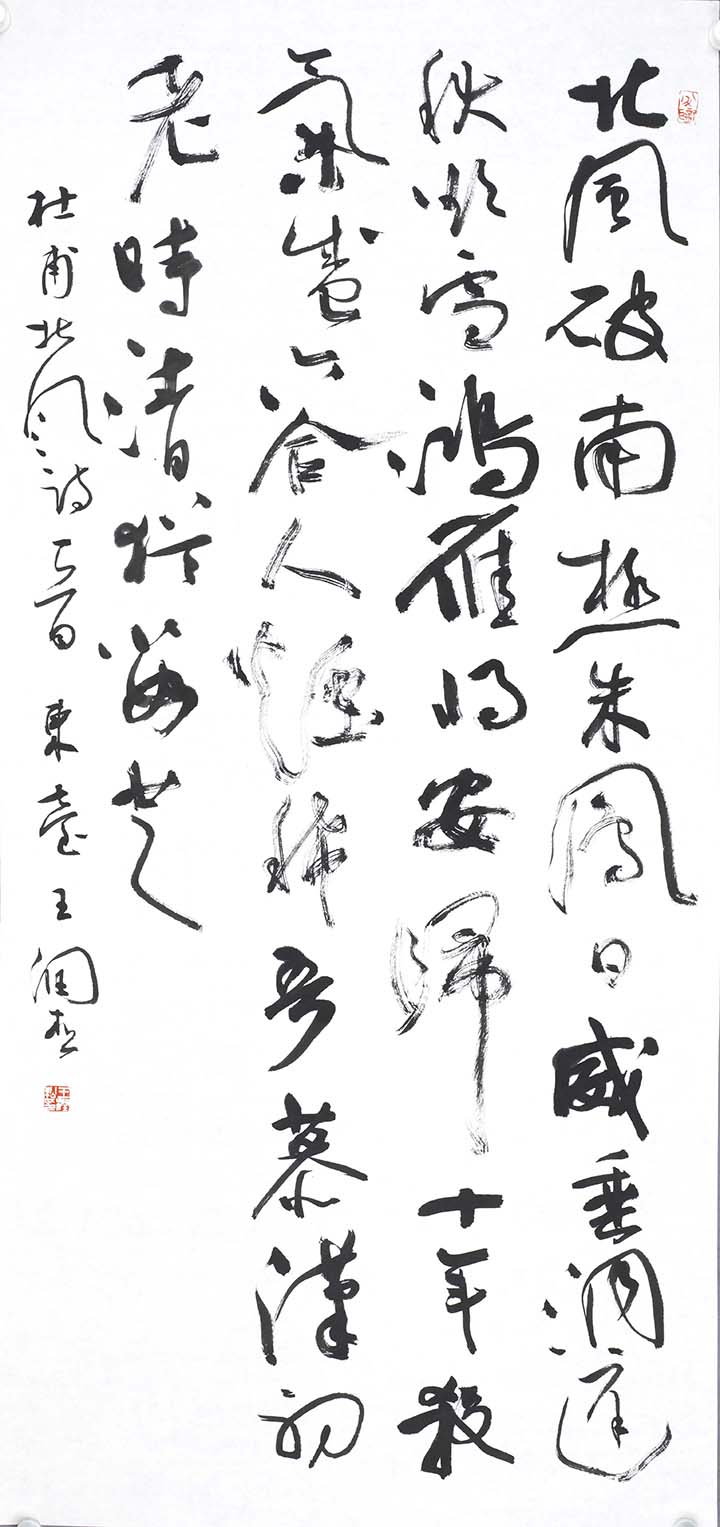 北風破南極朱鳳日威垂洞庭
秋欲雪鴻雁將安歸十年殺
氣盛六合人煙稀吾慕漢初
老時清猶茹芝
杜甫北風詩一首 東臺王潤